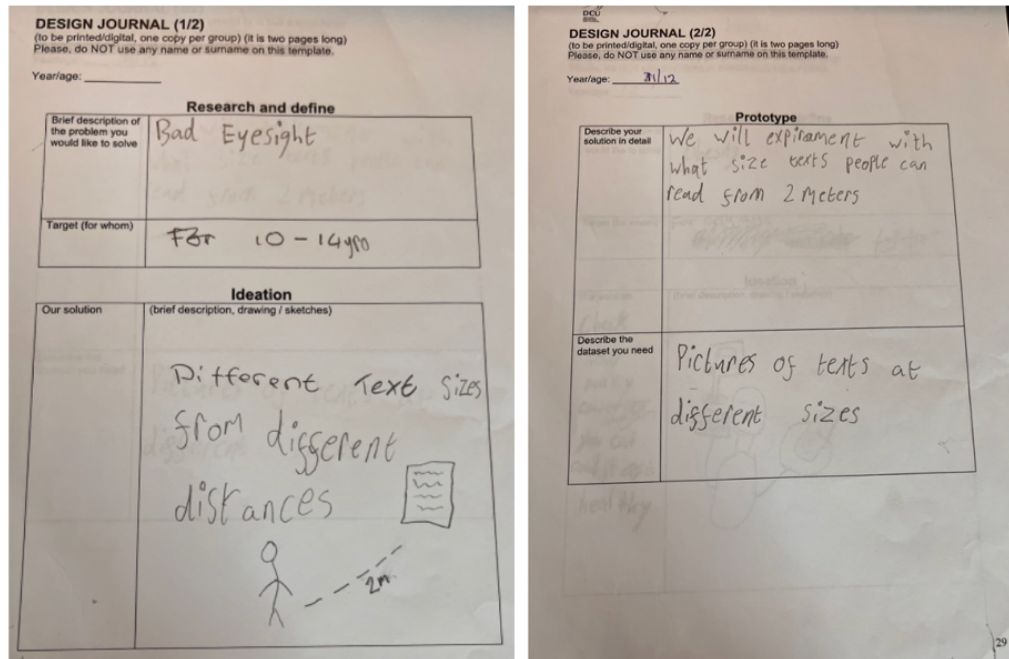 DESIGN JOURNAL (1/2)
(to be printed/digital, one copy per group) (it is two pages long)
Please, do NOT use any name or surname on this template.
Year/age:
Research and define
Brief description of
the problem you
would like to solve
Bad Eyesight
Target (for whom)
For 10 - 14yro
Ideation
Our solution
(brief description, drawing / sketches)
Different Text sizes
from different
distances
2m
DCU
DESIGN JOURNAL (2/2)
(to be printed/digital, one copy per group) (it is two pages long)
Please, do NOT use any name or surname on this template.
Year/age: /12
Prototype
Describe your
solution in detail
We will expirament with
what size texts people can
read from 2 Meters
Describe the
dataset you need
Pictures of texts at
different sizes
healthy
29